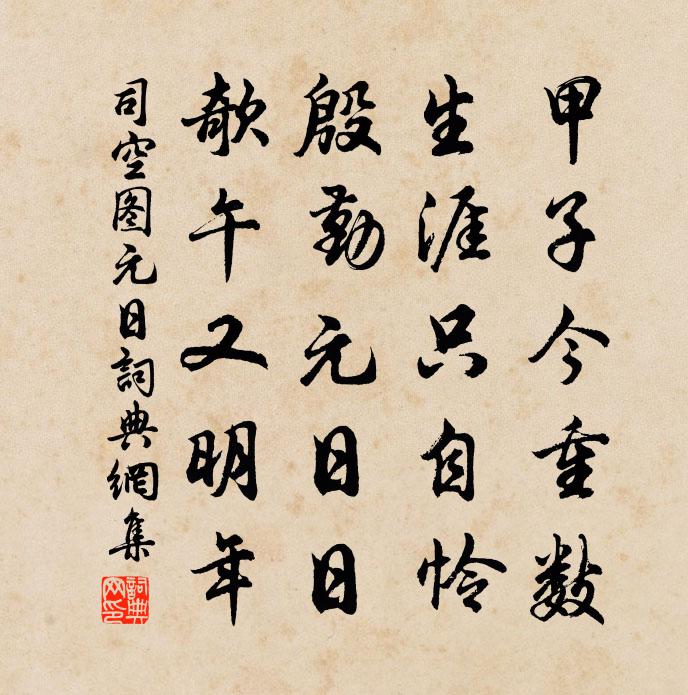 甲子今重数
生涯只自怜
殷勤元日日
欹午又明年
司空图元日詞典網集
詞典网印